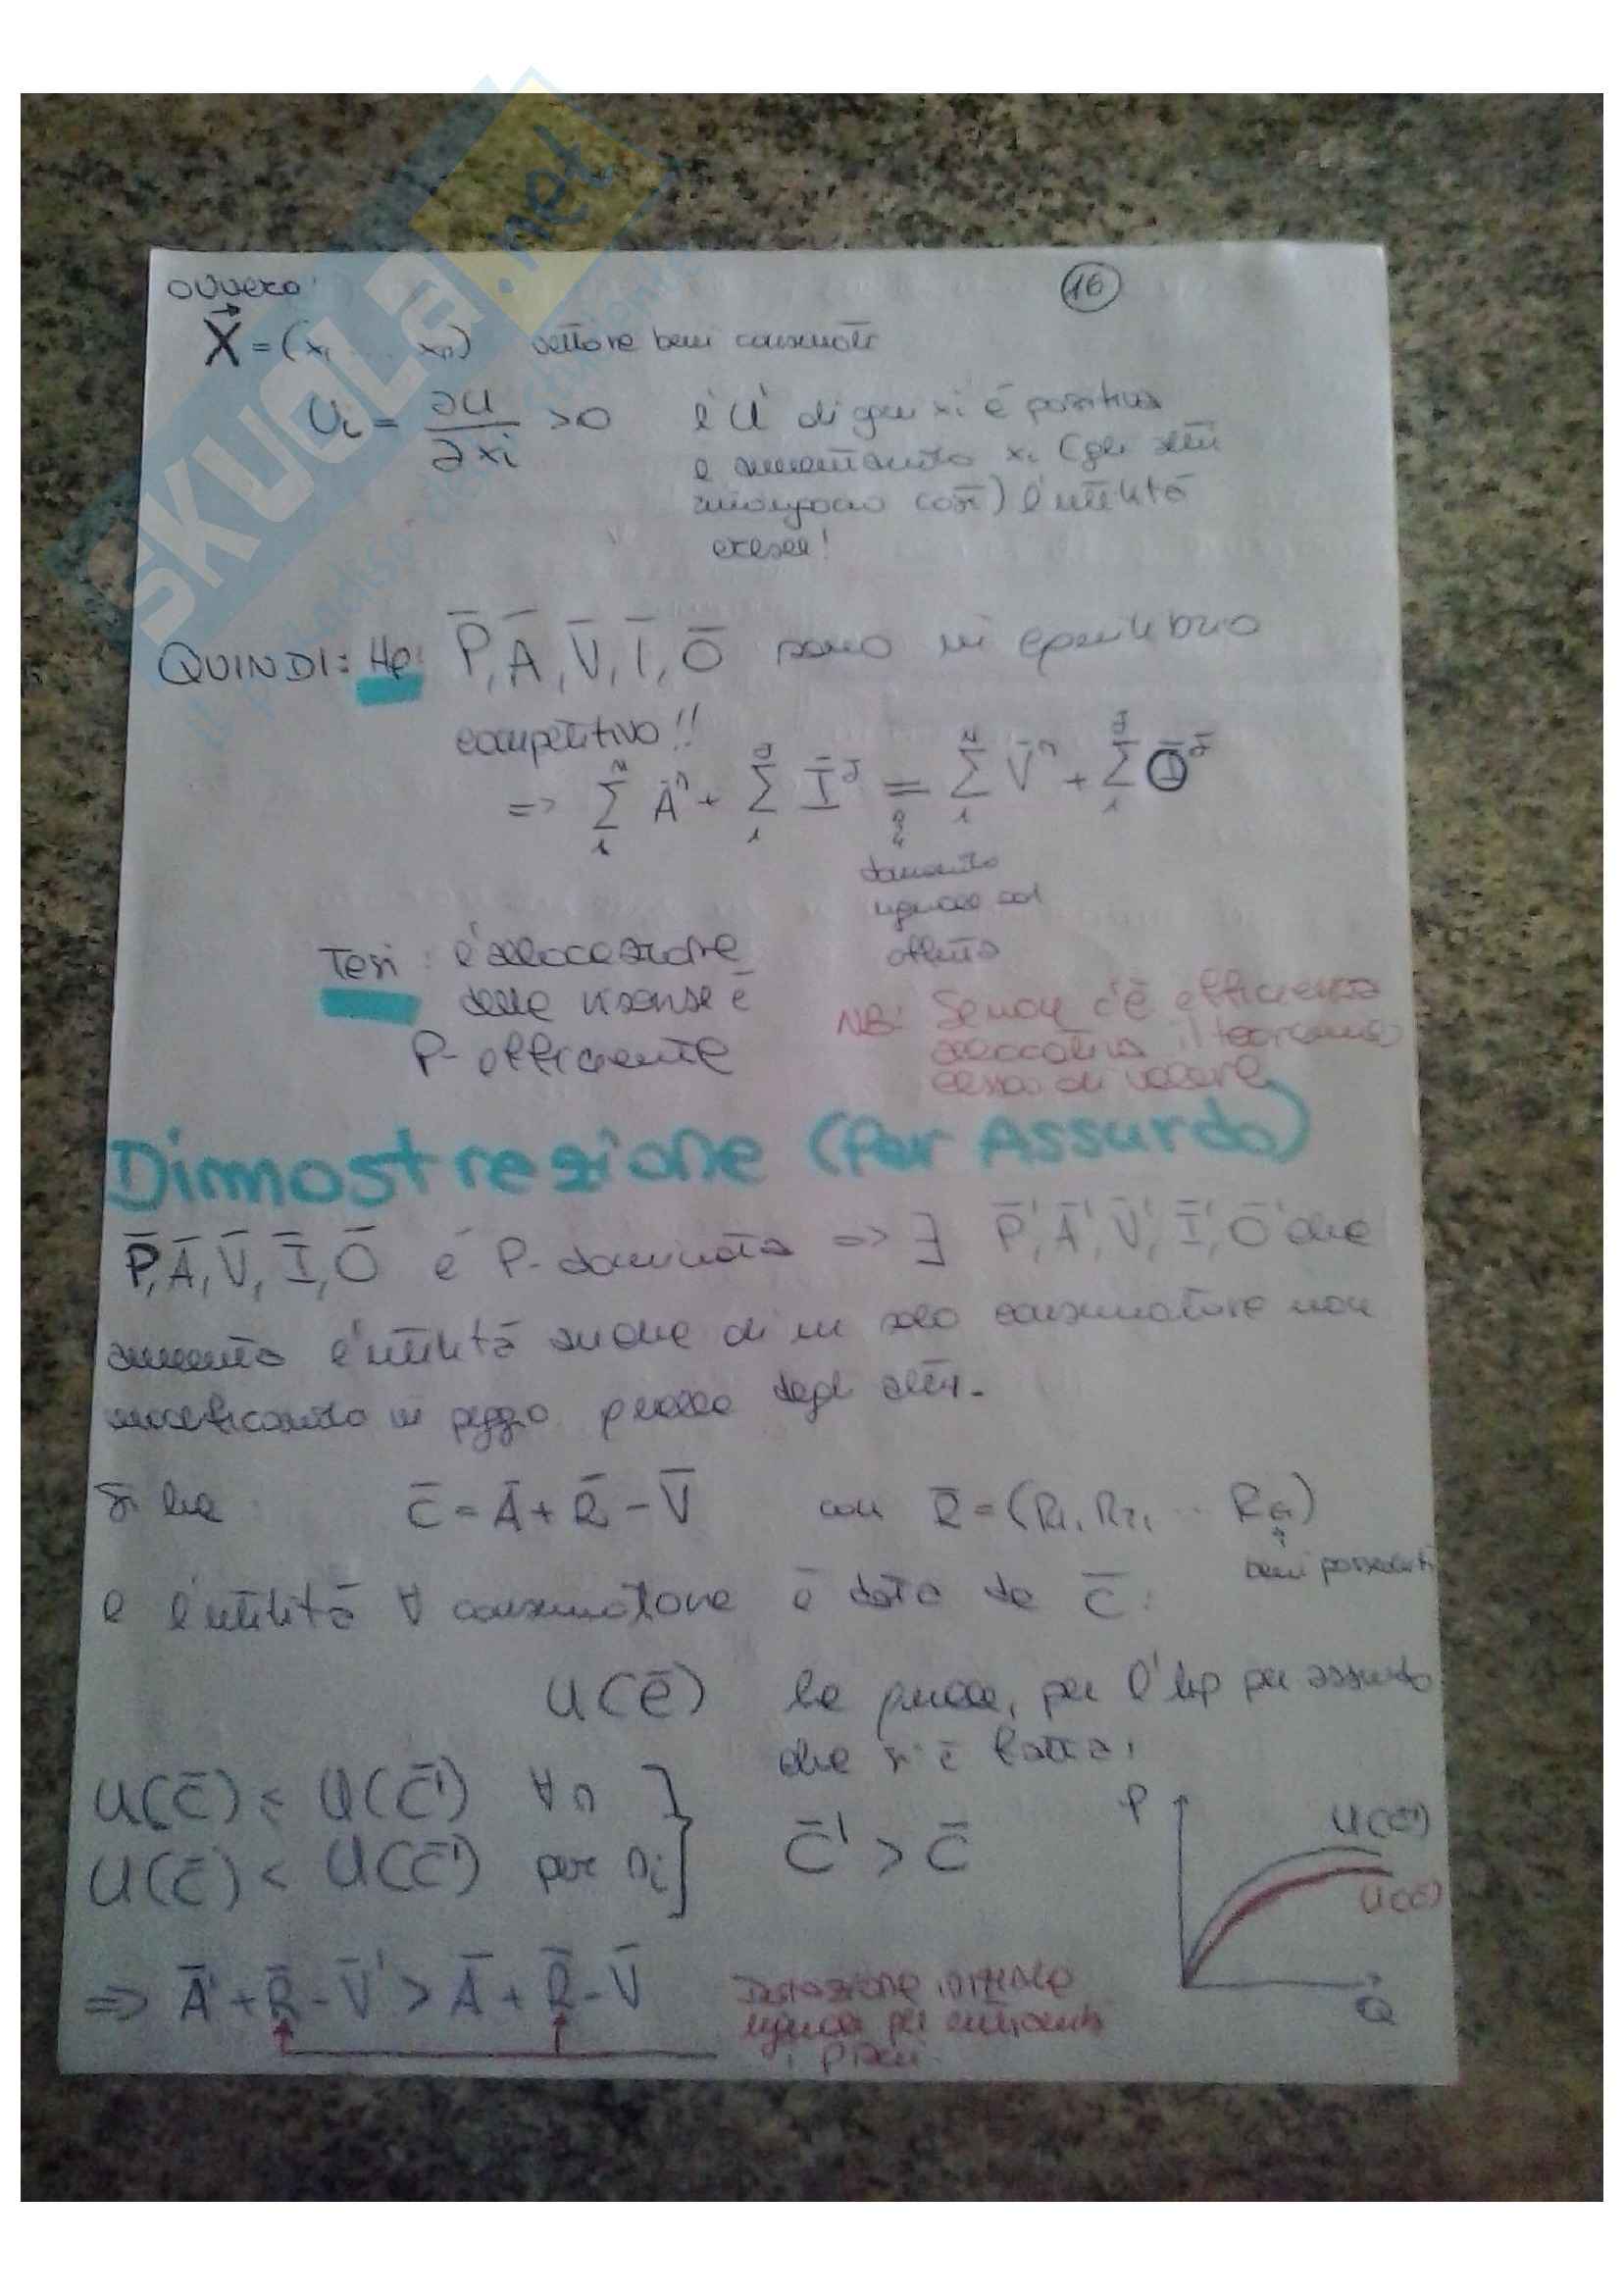 ovvero:
16
X = (x1 ... xn) vettore beni consumati
Ui = ∂U/∂xi >0 l'U' di ogni xi è positiva
e aumentando xi (gli altri
rimangono così) l'utilità
cresce!
QUINDI: Hp: P̄, Ā, V̄, Ī, Ō sono in equilibrio
competitivo!!
=> Σ Āⁿ + Σ Īᴶ = Σ V̄ⁿ + Σ Ōᴶ
domanda
uguale ad
offerta
Tesi: l'allocazione
delle risorse è
P-efficiente
NB: Se non c'è efficienza
allocativa il teorema
cessa di valere
Dimostrazione (Per Assurdo)
P̄, Ā, V̄, Ī, Ō è P-dominata => ∃ P̄', Ā', V̄', Ī', Ō' che
aumenta l'utilità anche di un solo consumatore non
modificando in peggio quella degli altri.
Si ha: C̄ = Ā + R̄ - V̄ con R̄ = (R1, R2, ... RG)
beni posseduti
e l'utilità ∀ consumatore è data da C̄:
U(C̄) la quale, per l'hp per assurdo
che si è fatta,
U(C̄) ≤ U(C̄') ∀n
U(C̄) < U(C̄') per ni
C̄' > C̄
P
U(C̄')
U(C̄)
Q
=> Ā' + R̄ - V̄' > Ā + R̄ - V̄
Dotazione iniziale
uguale per entrambi
i piani.
SKUOLA.net
il paradiso dello studente